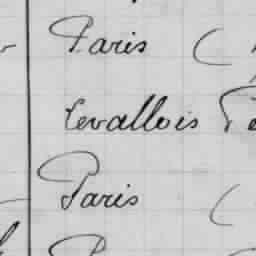 Paris (
Levallois
Paris (